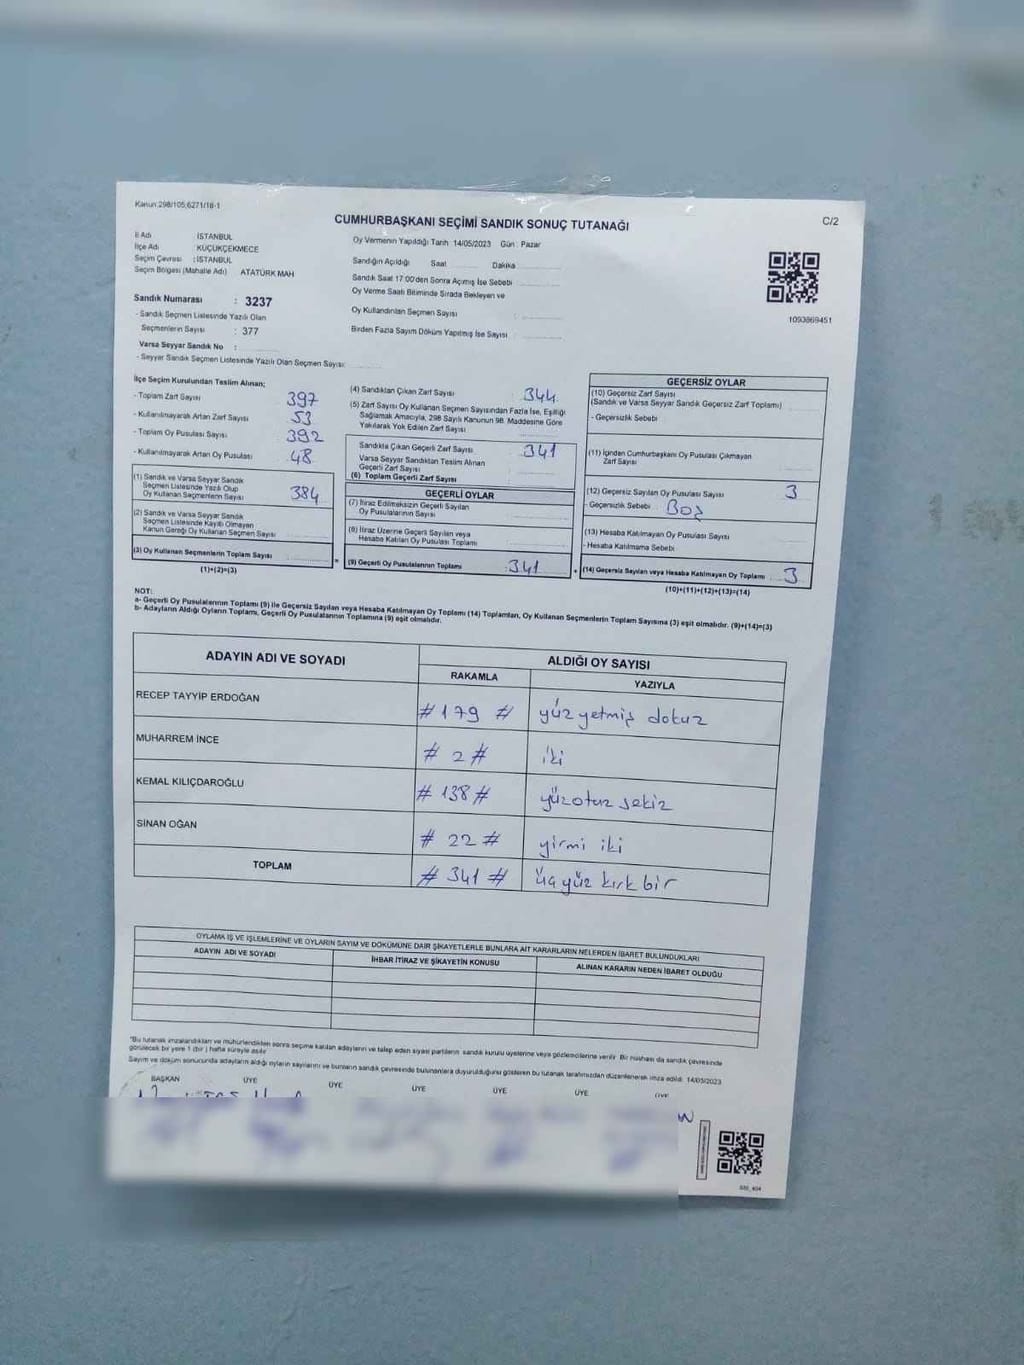 Kanun:298/105;6271/18-1
C/2
CUMHURBAŞKANI SEÇİMİ SANDIK SONUÇ TUTANAĞI
İl Adı İSTANBUL
İlçe Adı KÜÇÜKÇEKMECE
Seçim Çevresi :İSTANBUL
Seçim Bölgesi (Mahalle Adı) ATATÜRK MAH
Sandık Numarası : 3237
- Sandık Seçmen Listesinde Yazılı Olan
Seçmenlerin Sayısı : 377
Varsa Seyyar Sandık No :
- Seyyar Sandık Seçmen Listesinde Yazılı Olan Seçmen Sayısı:
Oy Vermenin Yapıldığı Tarih 14/05/2023 Gün : Pazar
Sandığın Açıldığı Saat Dakika
Sandık Saat 17:00'den Sonra Açılmış İse Sebebi
Oy Verme Saati Bitiminde Sırada Bekleyen ve
Oy Kullandırılan Seçmen Sayısı :
Birden Fazla Sayım Döküm Yapılmış İse Sayısı :
1093869451
İlçe Seçim Kurulundan Teslim Alınan;
- Toplam Zarf Sayısı 397
- Kullanılmayarak Artan Zarf Sayısı 53
- Toplam Oy Pusulası Sayısı 392
- Kullanılmayarak Artan Oy Pusulası 48
(1) Sandık ve Varsa Seyyar Sandık
Seçmen Listesinde Yazılı Olup
Oy Kullanan Seçmenlerin Sayısı 384
(2) Sandık ve Varsa Seyyar Sandık
Seçmen Listesinde Kayıtlı Olmayan
Kanun Gereği Oy Kullanan Seçmen Sayısı
(3) Oy Kullanan Seçmenlerin Toplam Sayısı
(1)+(2)=(3)
(4) Sandıktan Çıkan Zarf Sayısı : 344
(5) Zarf Sayısı Oy Kullanan Seçmen Sayısından Fazla İse, Eşitliği
Sağlamak Amacıyla, 298 Sayılı Kanunun 98. Maddesine Göre
Yakılarak Yok Edilen Zarf Sayısı
Sandıkta Çıkan Geçerli Zarf Sayısı : 341
Varsa Seyyar Sandıktan Teslim Alınan
Geçerli Zarf Sayısı
(6) Toplam Geçerli Zarf Sayısı
GEÇERLİ OYLAR
(7) İtiraz Edilmeksizin Geçerli Sayılan
Oy Pusulalarının Sayısı
(8) İtiraz Üzerine Geçerli Sayılan veya
Hesaba Katılan Oy Pusulası Toplamı
(9) Geçerli Oy Pusulalarının Toplamı : 341
GEÇERSİZ OYLAR
(10) Geçersiz Zarf Sayısı
(Sandık ve Varsa Seyyar Sandık Geçersiz Zarf Toplamı)
- Geçersizlik Sebebi
(11) İçinden Cumhurbaşkanı Oy Pusulası Çıkmayan
Zarf Sayısı
(12) Geçersiz Sayılan Oy Pusulası Sayısı 3
- Geçersizlik Sebebi Boş
(13) Hesaba Katılmayan Oy Pusulası Sayısı
- Hesaba Katılmama Sebebi
(14) Geçersiz Sayılan veya Hesaba Katılmayan Oy Toplamı : 3
(10)+(11)+(12)+(13)=(14)
NOT:
a- Geçerli Oy Pusulalarının Toplamı (9) ile Geçersiz Sayılan veya Hesaba Katılmayan Oy Toplamı (14) Toplamları, Oy Kullanan Seçmenlerin Toplam Sayısına (3) eşit olmalıdır. (9)+(14)=(3)
b- Adayların Aldığı Oyların Toplamı, Geçerli Oy Pusulalarının Toplamına (9) eşit olmalıdır.
ADAYIN ADI VE SOYADI ALDIĞI OY SAYISI
RAKAMLA YAZIYLA
RECEP TAYYİP ERDOĞAN # 179 # yüz yetmiş dokuz
MUHARREM İNCE # 2 # iki
KEMAL KILIÇDAROĞLU # 138 # yüzotuz sekiz
SİNAN OĞAN # 22 # yirmi iki
TOPLAM # 341 # üçyüz kırk bir
OYLAMA İŞ VE İŞLEMLERİNE VE OYLARIN SAYIM VE DÖKÜMÜNE DAİR ŞİKAYETLERLE BUNLARA AİT KARARLARIN NELERDEN İBARET BULUNDUKLARI
ADAYIN ADI VE SOYADI İHBAR İTİRAZ VE ŞİKAYETİN KONUSU ALINAN KARARIN NEDEN İBARET OLDUĞU
"Bu tutanak imzalandıktan ve mühürlendikten sonra seçime katılan adayların ve talep eden siyasi partilerin sandık kurulu üyelerine veya gözlemcilerine verilir. Bir nüshası da sandık çevresinde
görülecek bir yere 1 (bir) hafta süreyle asılır
Sayım ve döküm sonucunda adayların aldığı oyların sayılarını ve bunların sandık çevresinde bulunanlara duyurulduğunu gösteren bu tutanak tarafımızdan düzenlenerek imza edildi. 14/05/2023
BAŞKAN ÜYE ÜYE ÜYE ÜYE ÜYE ÜYE